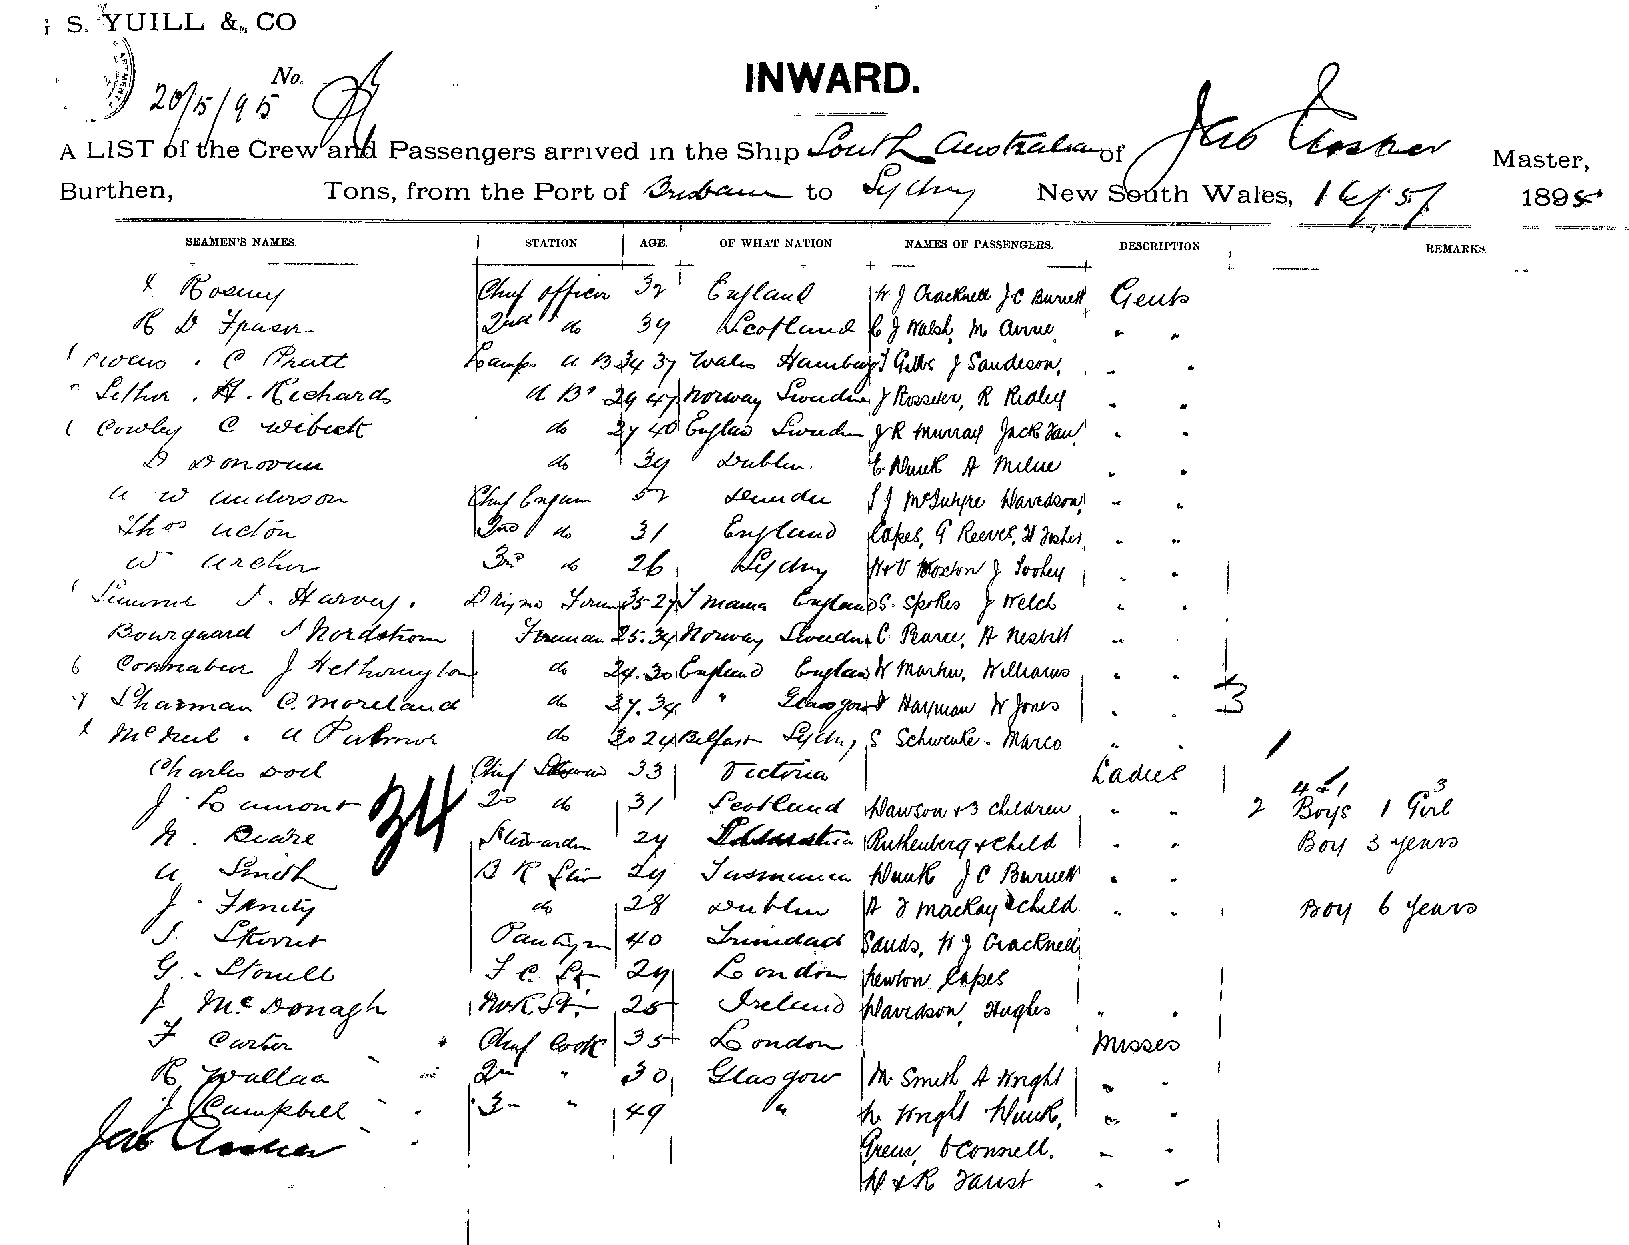 S. YUILL & CO
No.
20/5/95
INWARD.
A LIST of the Crew and Passengers arrived in the Ship South Australian of Jas Master,
Burthen, Tons, from the Port of Brisbane to Sydney New South Wales, 16/5/ 1895
SEAMEN'S NAMES. STATION AGE. OF WHAT NATION NAMES OF PASSENGERS. DESCRIPTION REMARKS
Chief officer 32 England W J Cracknell J C Burnett Gents
R D Fraser 2nd do 39 Scotland J Walsh, M " "
C Pratt Lamps A B 34 37 Wales Hamburg Gibbs J Sandeson, " "
H. Richards A B 29 47 Norway Sweden J Rosseter, R Ridley " "
Cowley C Wibeck do 27 40 England Sweden J R Murray Jack " "
D Donovan do 39 Dublin A Milne " "
A W Anderson Chief Engin 52 Dundee J McIntyre Davidson, " "
Thos Acton 2nd do 31 England Capes, G Reeves, H " "
W Archer 3rd do 26 Sydney Moxton J Toohey " "
J. Harvey. 35 27 England S. Spokes J Welch " "
Bourguard Nordstrom Fireman 25. 34 Norway Sweden C Pearce, A Nesbitt " "
J Hetherington do 24. 30 England England W Martin, Williams " "
Sharman C. Moreland do 37. 34 " Glasgow Hayman W Jones " "
McNeil . A do 30 24 Belfast Sydney S Schwenke. Marco " "
34
Charles Doel Chief Steward 33 Victoria Ladies
J. Lamont 2d do 31 Scotland Dawson + 3 children " " 2 Boys 1 Girl
4 & 1 3
29 Ruthenberg + child " " Boy 3 years
A Smith B R 29 Tasmania J C Burnett " "
J. do 28 Dublin A J Mackay & child " " Boy 6 years
40 Trinidad Sands, W J Cracknell
G. Stowell F C St 29 London Newton Capes
J McDonagh St. 25 Ireland Davidson, Hughes " "
F Carter Chief Cook 35 London Misses
R Wallace 2nd " 30 Glasgow M Smith A Wright " "
J Campbell 3 " 49 " Wright " "
Jas Green, O'Connell. " "
& R Faust " "